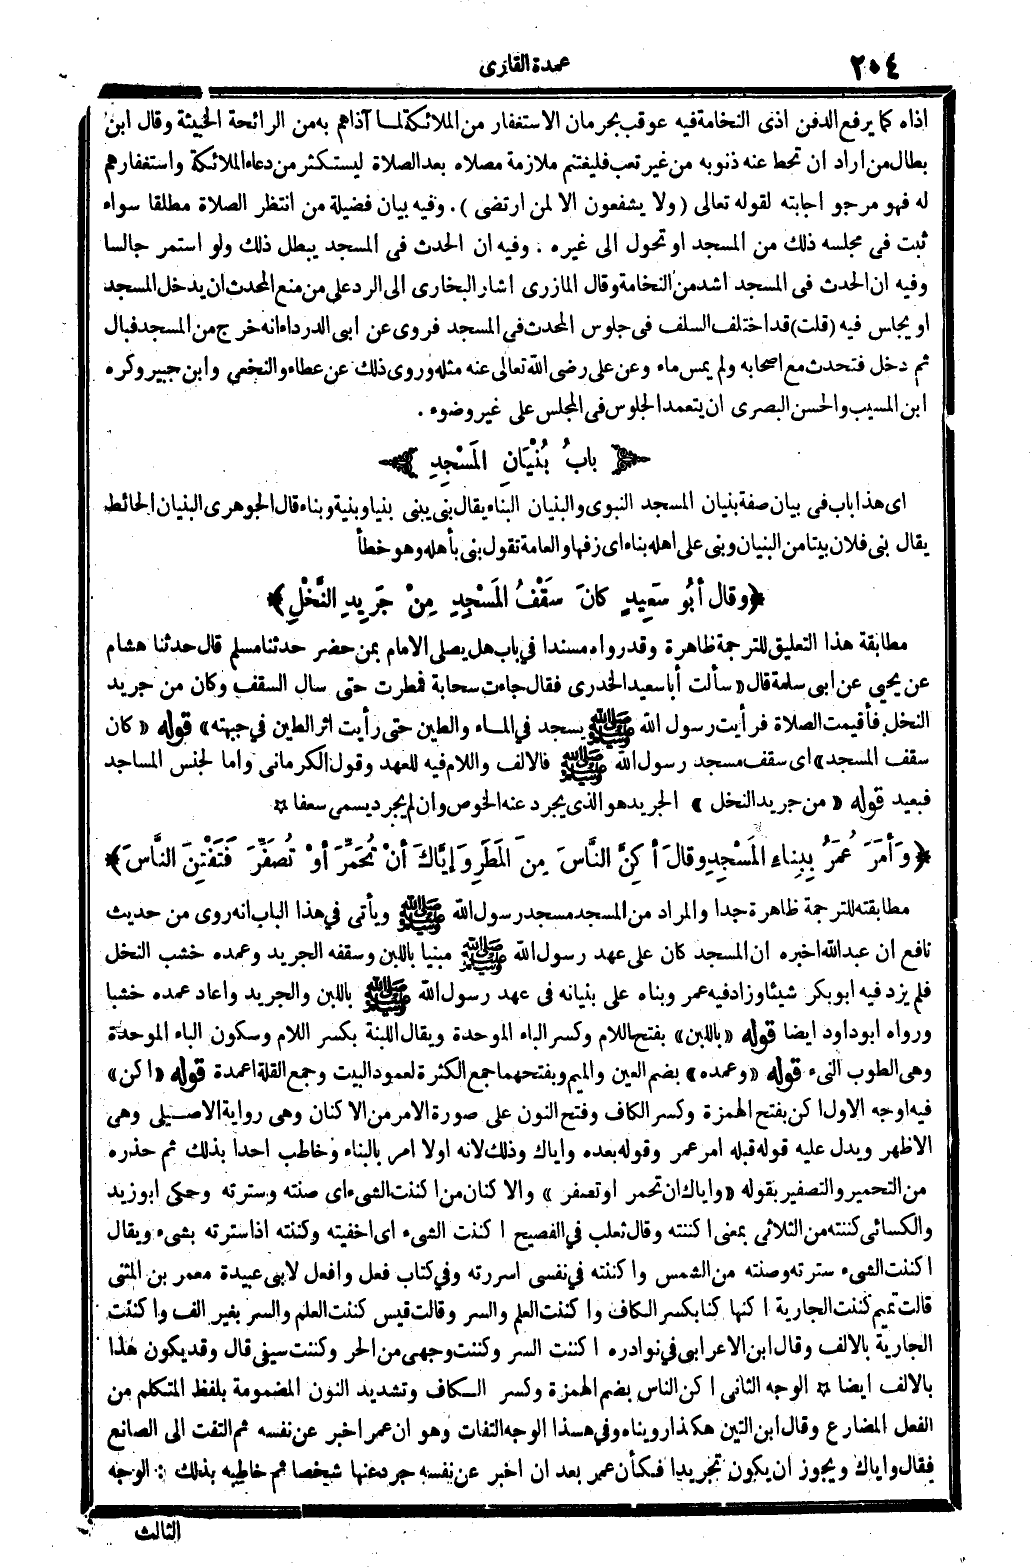 ٢٠٤
عمدة القارى
اذاه كما يرفع الدفن اذى النخامة فيه عوقب بحرمان الاستغفار من الملائكة لما آذاهم به من الرائحة الخبيثة وقال ابن
بطال من اراد ان تحط عنه ذنوبه من غير تعب فليغتنم ملازمة مصلاه بعد الصلاة ليستكثر من دعاء الملائكة واستغفارهم
له فهو مرجو اجابته لقوله تعالى (ولا يشفعون الا لمن ارتضى). وفيه بيان فضيلة من انتظر الصلاة مطلقا سواء
ثبت فى مجلسه ذلك من المسجد او تحول الى غيره . وفيه ان الحدث فى المسجد يبطل ذلك ولو استمر جالسا
وفيه ان الحدث فى المسجد اشد من النخامة وقال المازرى اشار البخارى الى الرد على من منع المحدث ان يدخل المسجد
او يجلس فيه (قلت) قد اختلف السلف فى جلوس المحدث فى المسجد فروى عن ابى الدرداء انه خرج من المسجد فبال
ثم دخل فتحدث مع اصحابه ولم يمس ماء وعن على رضى الله تعالى عنه مثله وروى ذلك عن عطاء والنخعي وابن جبير وكره
ابن المسيب والحسن البصرى ان يتعمد الجلوس فى المجلس على غير وضوء .
بابُ بُنْيَانِ المَسْجِدِ
اى هذا باب فى بيان صفة بنيان المسجد النبوى والبنيان البناء يقال بنى يبنى بنيا وبنية وبناء قال الجوهرى البنيان الحائط
يقال بنى فلان بيتا من البنيان وبنى على اهله بناء اى زفها والعامة تقول بنى بأهله وهو خطأ
﴿وقال أبُو سَعِيدٍ كانَ سَقْفُ المَسْجِدِ مِنْ جَرِيدِ النَّخْلِ﴾
مطابقة هذا التعليق للترجمة ظاهرة وقد رواه مسندا في باب هل يصلى الامام بمن حضر حدثنا مسلم قال حدثنا هشام
عن يحيي عن ابى سلمة قال «سألت أبا سعيد الخدرى فقال جاءت سحابة فمطرت حتى سال السقف وكان من جريد
النخل فأقيمت الصلاة فرأيت رسول الله ﷺ يسجد في الماء والطين حتى رأيت اثر الطين في جبهته» قوله «كان
سقف المسجد» اى سقف مسجد رسول الله ﷺ فالالف واللام فيه للعهد وقول الكرمانى واما لجنس المساجد
فبعيد قوله «من جريد النخل» الجريد هو الذى يجرد عنه الخوص وان لم يجرد يسمى سعفا ۞
﴿وَأمَرَ عُمَرُ بِبِناءِ المَسْجِدِ وقالَ أكِنَّ النَّاسَ مِنَ المَطَرِ وَإيَّاكَ أنْ تُحَمِّرَ أوْ تُصَفِّرَ فَتَفْتِنَ النَّاسَ﴾
مطابقته للترجمة ظاهرة جدا والمراد من المسجد مسجد رسول الله ﷺ ويأتى في هذا الباب انه روى من حديث
نافع ان عبد الله اخبره ان المسجد كان على عهد رسول الله ﷺ مبنيا باللبن وسقفه الجريد وعمده خشب النخل
فلم يزد فيه ابو بكر شيئا وزاد فيه عمر وبناه على بنيانه فى عهد رسول الله ﷺ باللبن والجريد واعاد عمده خشبا
ورواه ابو داود ايضا قوله «باللبن» بفتح اللام وكسر الباء الموحدة ويقال اللبنة بكسر اللام وسكون الباء الموحدة
وهى الطوب النيء قوله «وعمده» بضم العين والميم وبفتحهما جمع الكثرة لعمود البيت وجمع القلة اعمدة قوله «اكن»
فيه اوجه الاول اكن بفتح الهمزة وكسر الكاف وفتح النون على صورة الامر من الاكنان وهى رواية الاصيلى وهى
الاظهر ويدل عليه قوله قبله امر عمر وقوله بعده واياك وذلك لانه اولا امر بالبناء وخاطب احدا بذلك ثم حذره
من التحمير والتصفير بقوله «واياك ان تحمر او تصفر» والاكنان من اكننت الشىء اى صنته وسترته وحكى ابو زيد
والكسائى كننته من الثلاثى بمعنى اكننته وقال ثعلب في الفصيح اكننت الشىء اى اخفيته وكننته اذا سترته بشىء ويقال
اكننت الشىء سترته وصنته من الشمس واكننته في نفسى اسررته وفي كتاب فعل وافعل لابى عبيدة معمر بن المثنى
قالت تميم كننت الجارية اكنها كنا بكسر الكاف واكننت العلم والسر وقالت قيس كننت العلم والسر بغير الف واكننت
الجارية بالالف وقال ابن الاعرابى في نوادره اكننت السر وكننت وجهى من الحر وكننت سيفى قال وقد يكون هذا
بالالف ايضا ۞ الوجه الثانى اكن الناس بضم الهمزة وكسر الكاف وتشديد النون المضمومة بلفظ المتكلم من
الفعل المضارع وقال ابن التين هكذا رويناه وفي هذا الوجه التفات وهو ان عمر اخبر عن نفسه ثم التفت الى الصانع
فقال واياك ويجوز ان يكون تجريدا فكأن عمر بعد ان اخبر عن نفسه جرد عنها شخصا ثم خاطبه بذلك : الوجه
الثالث